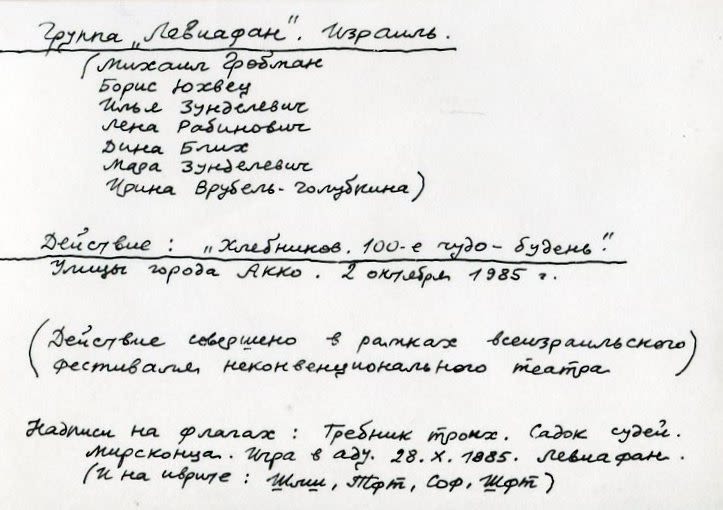 Группа „Левиафан". Израиль.
(Михаил Гробман
Борис Юхвец
Илья Зунделевич
Лена Рабинович
Дина Блих
Мара Зунделевич
Ирина Врубель-Голубкина)
Действие: „Хлебников. 100-е чудо-будень".
Улицы города Акко. 2 октября 1985 г.
(Действие совершено в рамках всеизраильского
фестиваля неконвенционального театра)
Надписи на флагах: Требник троих. Садок судей.
Мирсконца. Игра в аду. 28.X.1885. Левиафан.
(И на иврите: Шлиш, Тфт, Соф, Шфт)